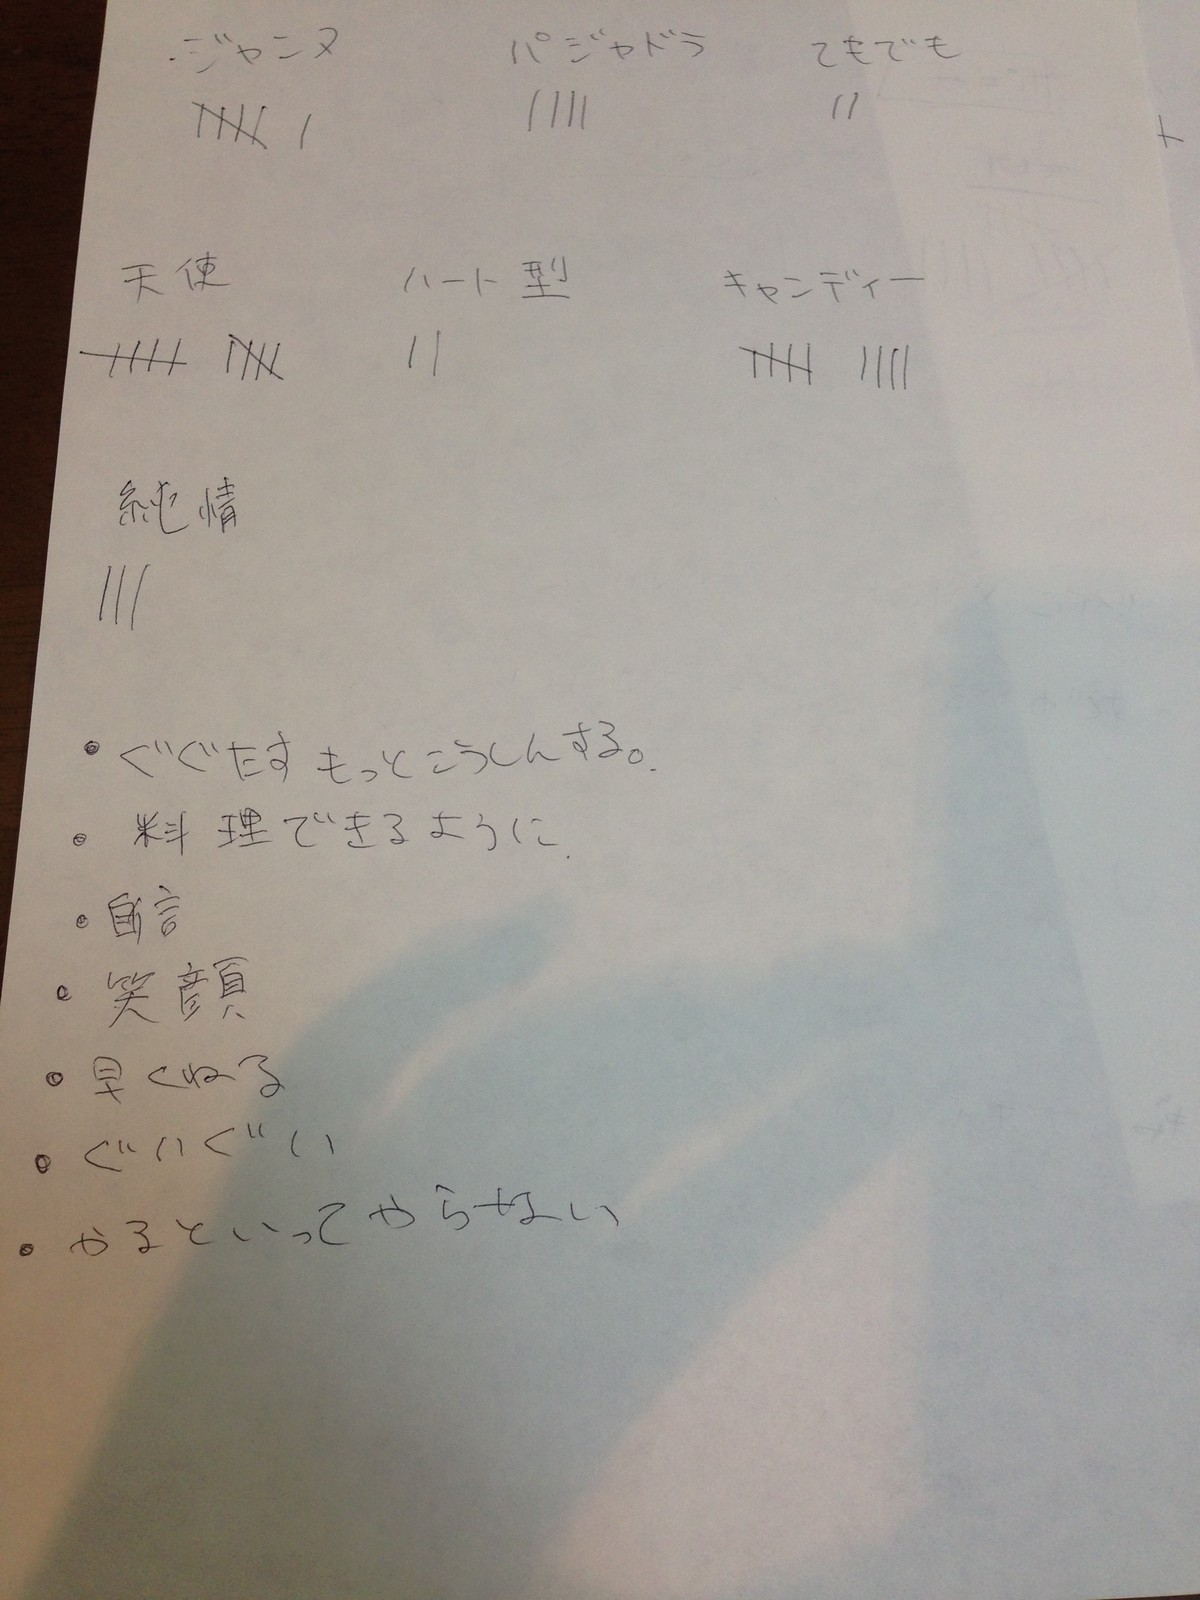 ・ジャンヌ パジャドラ てもでも
天使 ハート型 キャンディー
純情
・ぐぐたすもっとこうしんする。
・料理できるように
・笑顔
・早くねる
・ぐいぐい
・やるといってやらない